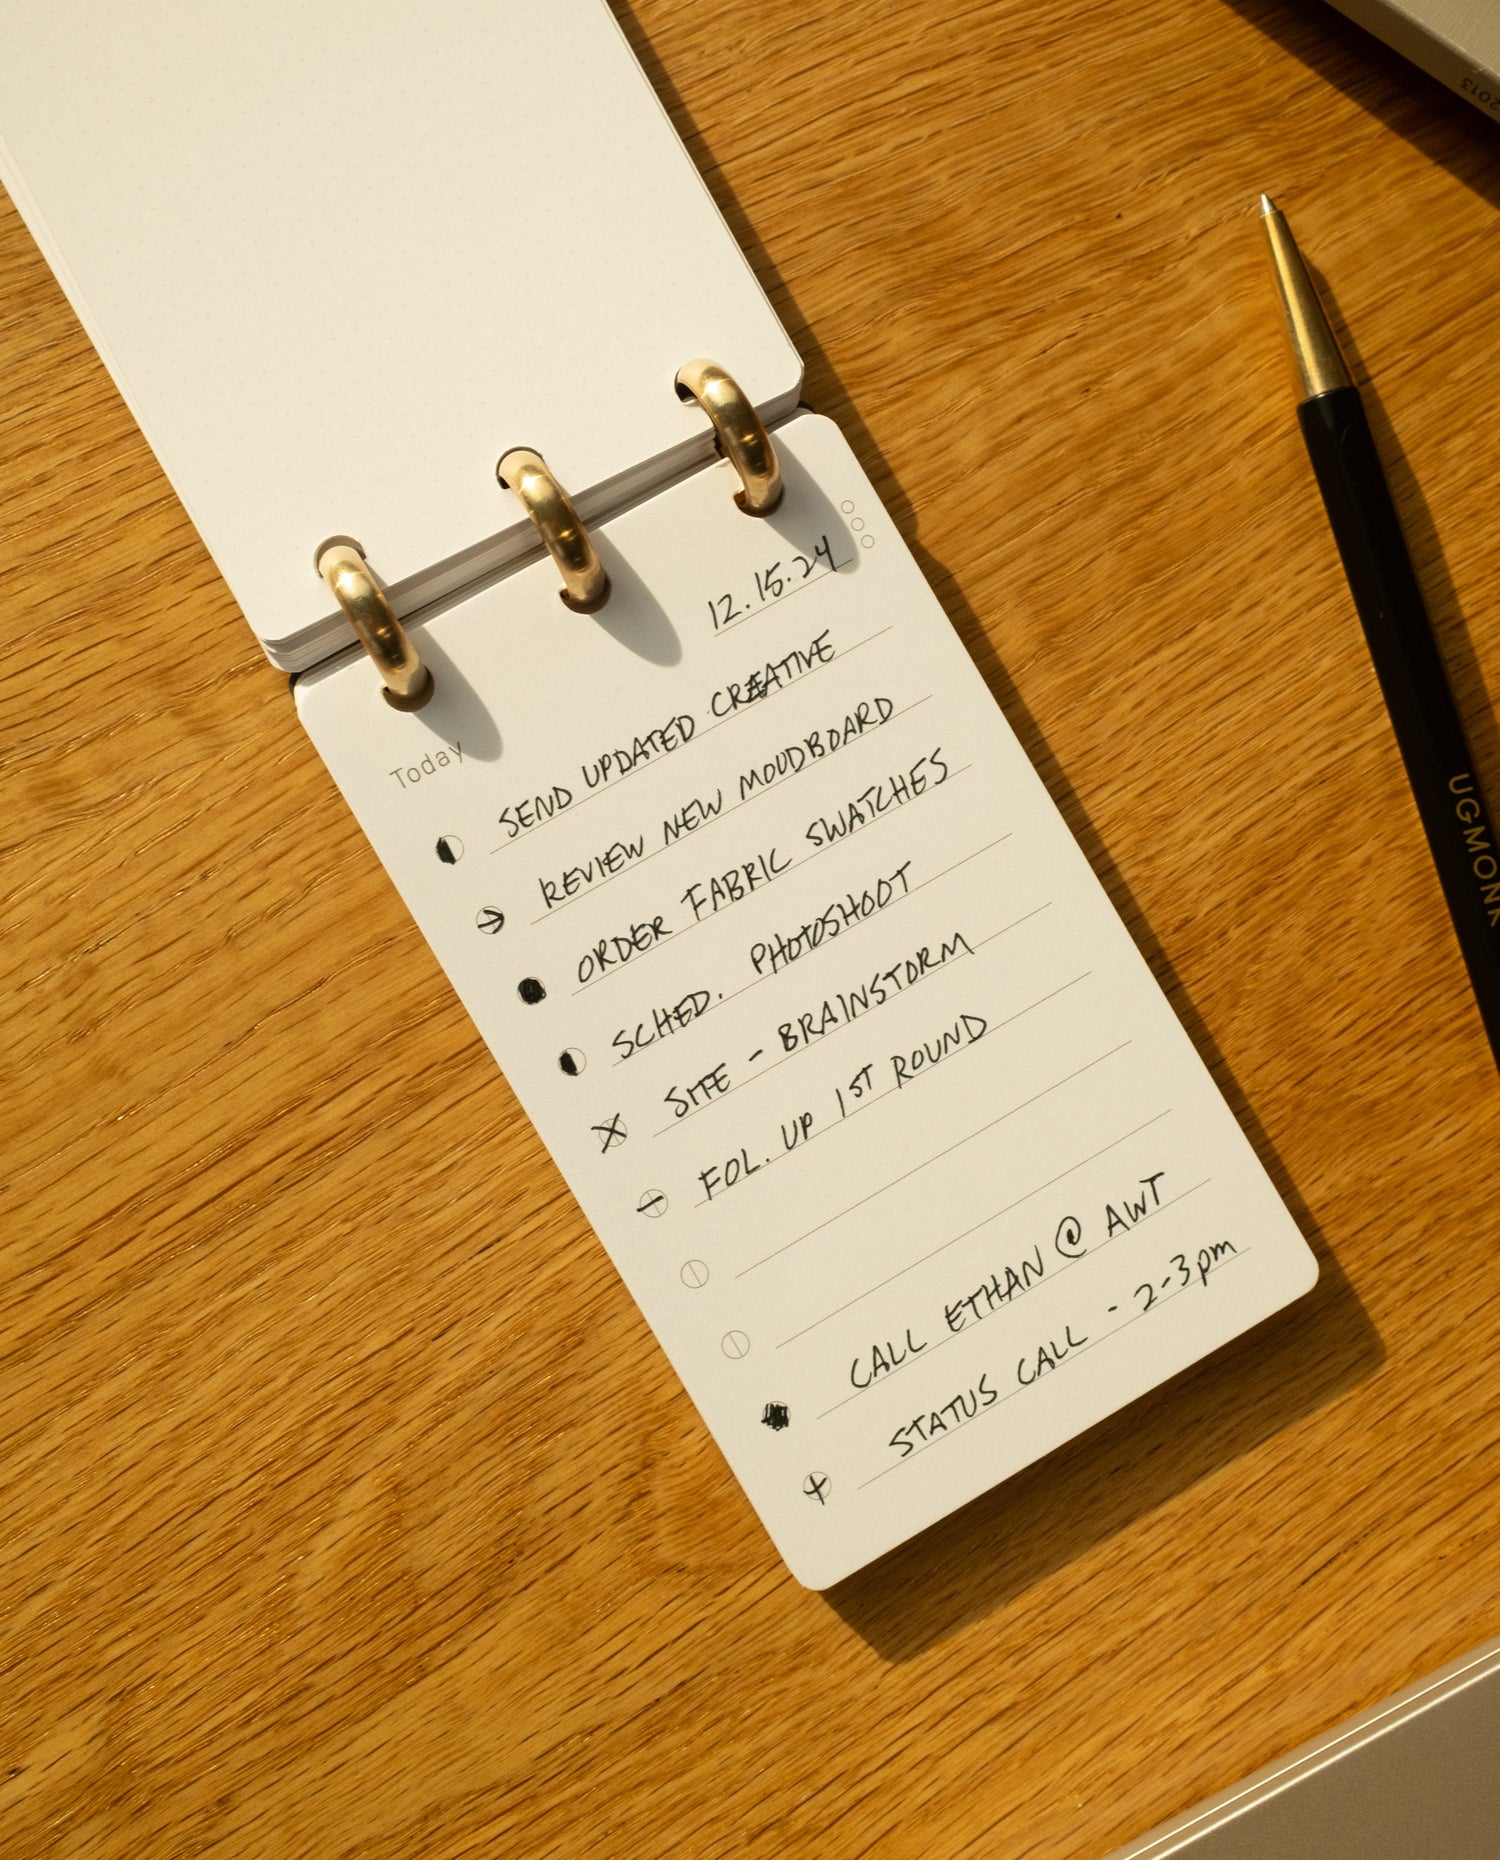 12.15.24
Today
SEND UPDATED CREATIVE
REVIEW NEW MOODBOARD
ORDER FABRIC SWATCHES
SCHED. PHOTOSHOOT
SITE - BRAINSTORM
FOL. UP 1ST ROUND
CALL ETHAN @ AWT
STATUS CALL - 2-3pm
UGMONK
2013